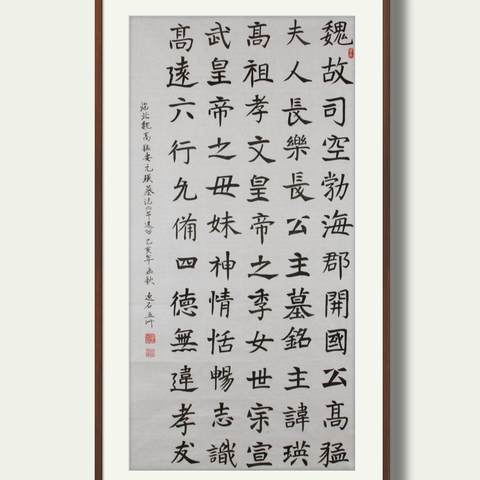 魏故司空勃海郡開國公髙猛
夫人長樂長公主墓銘主諱瑛
髙祖孝文皇帝之季女世宗宣
武皇帝之毋妹神情恬暢志識
髙遠六行允備四德無違孝友
臨北魏高猛妻元瑛墓志 亥年 秋